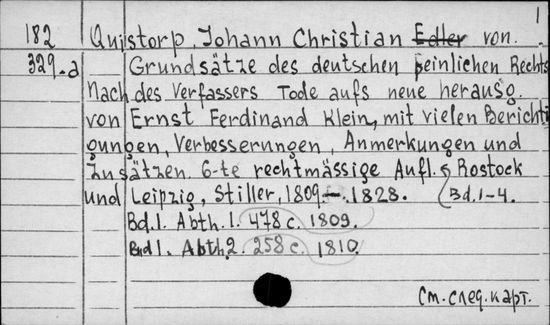 1
182 Quistorp, Johann Christian Edler von.
329-a Grundsätze des deutschen peinlichen Rechts
Nach des Verfassers Tode aufs neue herausg.
von Ernst Ferdinand Klein, mit vielen Berichti
gungen, Verbesserungen, Anmerkungen und
Zusätzen. 6-te rechtmässige Aufl. Rostock
und Leipzig, Stiller, 1809.-.1828. Bd.1-4.
Bd.1. Abth.1. 478 c. 1809.
Bd1. Abth.2. 258 c. 1810.
См. след. карт.